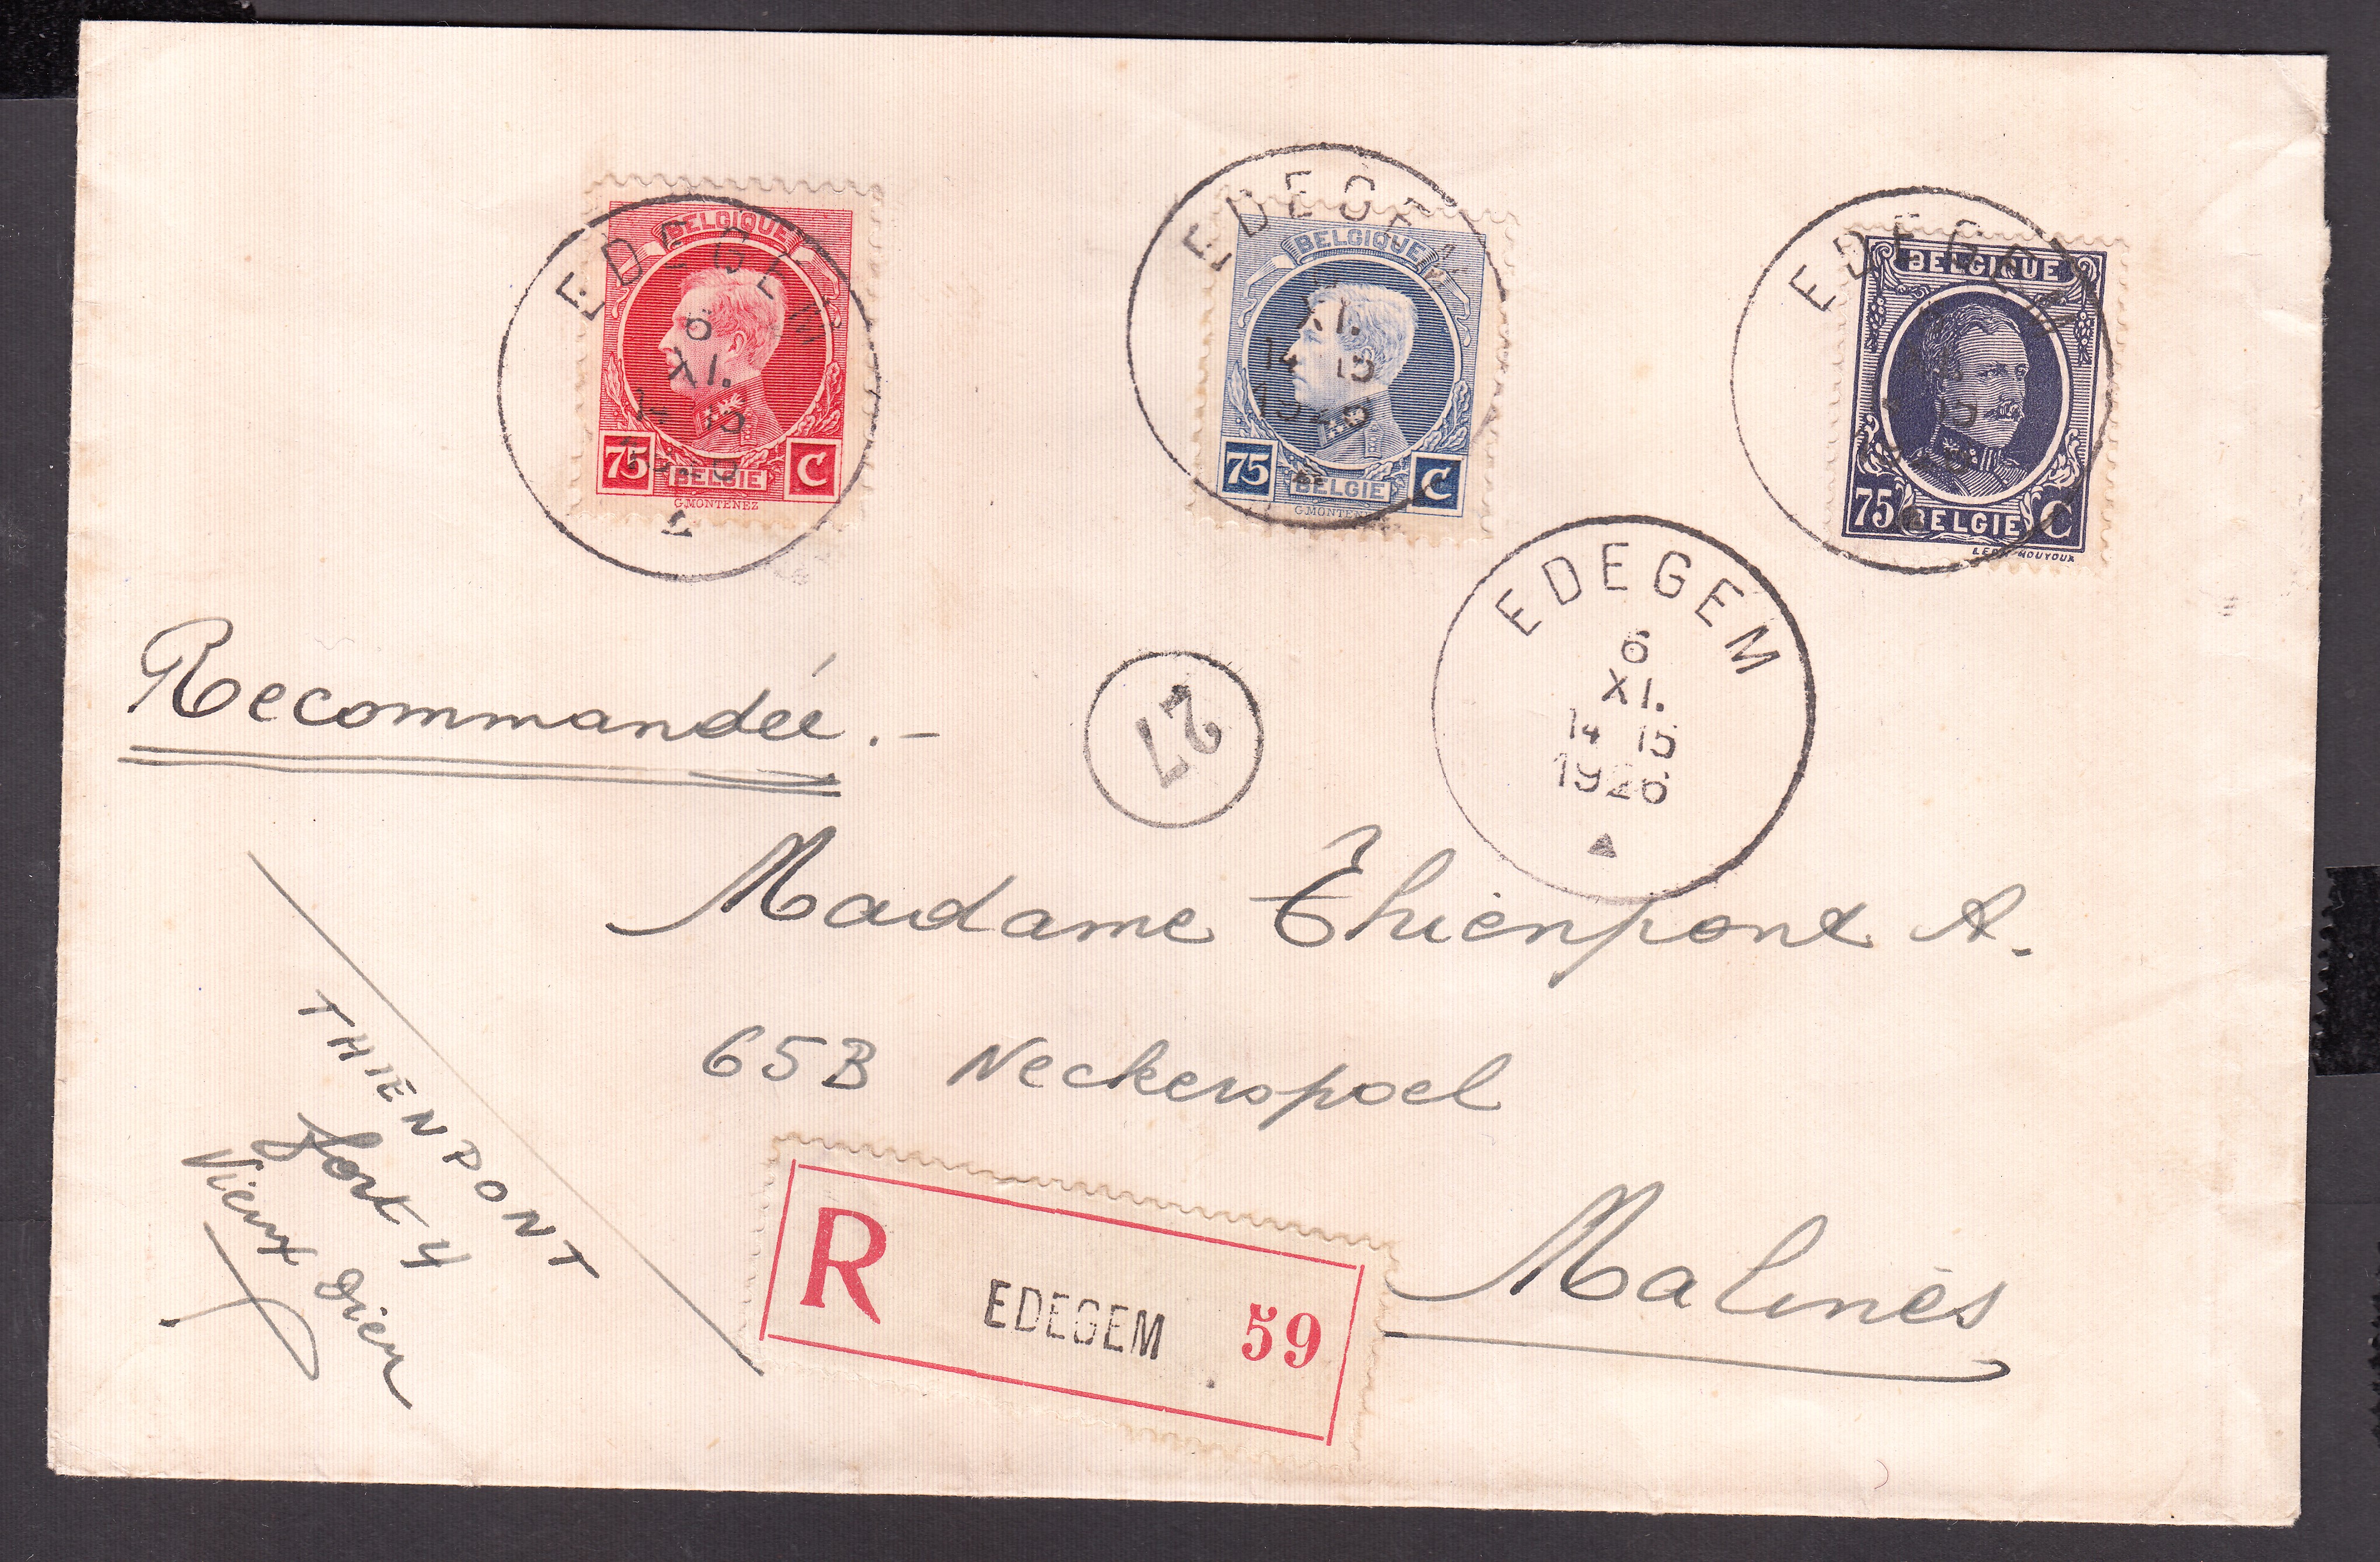 BELGIQUE
75 C
BELGIE
G.MONTENEZ
EDEGEM
6
XI.
14 15
BELGIQUE
75 C
BELGIE
G.MONTENEZ
EDEGEM
XI.
14 15
1926
BELGIQUE
75 BELGIE C
EDEGEM
EDEGEM
6
XI.
14 15
1926
27
Recommandée.-
Madame Thienpont A.
65B Neckerspoel
Malines
R EDEGEM 59
THIENPONT
Fort 4
Vieux Dieu